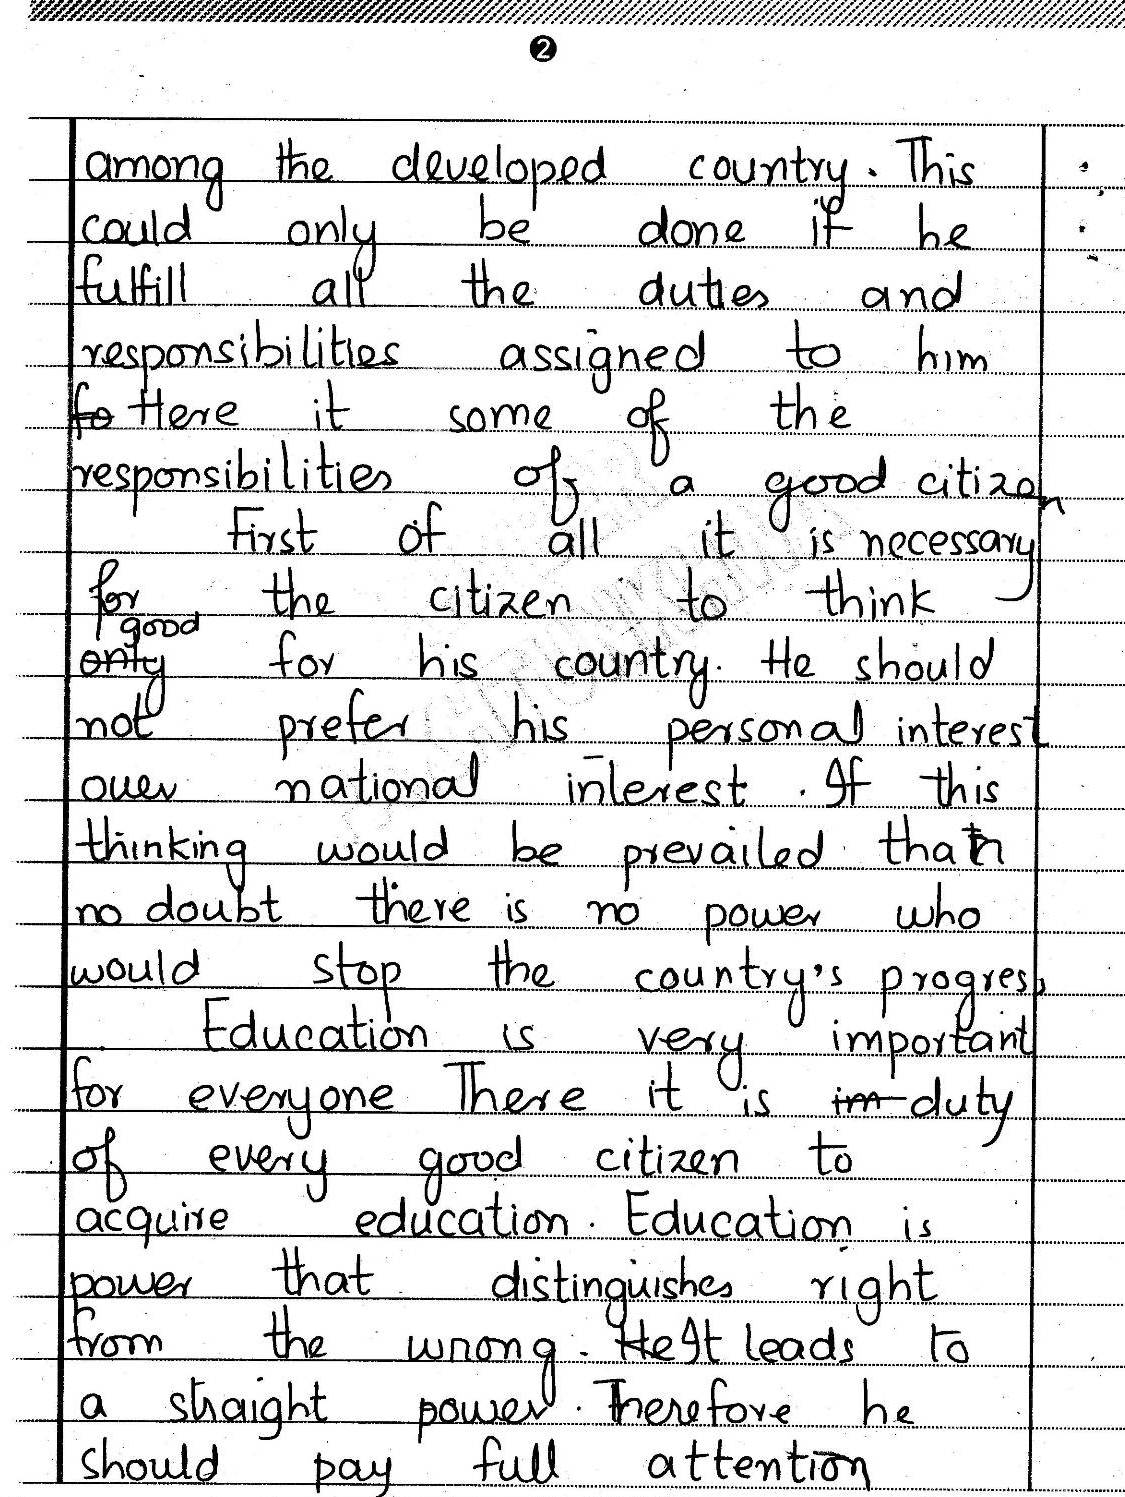 2
among the developed country. This
could only be done if he
fulfill all the duties and
responsibilities assigned to him
fo Here it some of the
responsibilities of a good citizen
First of all it is necessary
for the citizen to think
good
only for his country. He should
not prefer his personal interest
over national interest. If this
thinking would be prevailed than
no doubt there is no power who
would stop the country's progress
Education is very important
for everyone There it is im duty
of every good citizen to
acquire education. Education is
power that distinguishes right
from the wrong. He It leads to
a straight power. Therefore he
should pay full attention